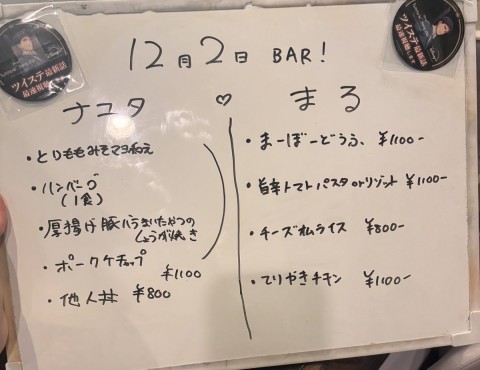 ツイステ最新話
最速報酬
ツイステ最新話
12月2日 BAR!
ナユタ ♡ まる
・とりももみそマヨ和え
・ハンバーグ
(1食)
・厚揚げ豚バラまいたやつの
しょうが焼き
・ポークケチャップ
¥1100
・他人丼 ¥800
・まーぼーどうふ、 ¥1100-
・旨辛トマトパスタorリゾット ¥1100-
・チーズオムライス ¥800-
・てりやきチキン ¥1100-